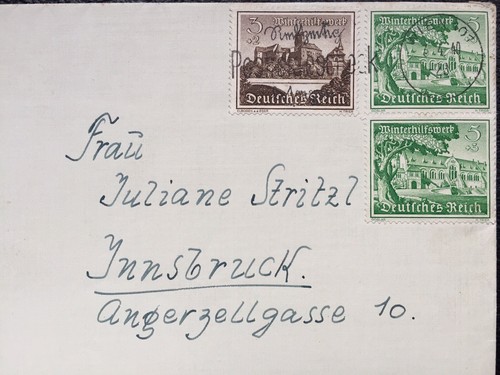 3 Winterhilfswerk
+2
Deutsches Reich
Winterhilfswerk 5
+3
Deutsches Reich
Winterhilfswerk 5
+3
Deutsches Reich
Postscheck
40
Frau
Juliane Stritzl
Innsbruck.
Angerzellgasse 10.